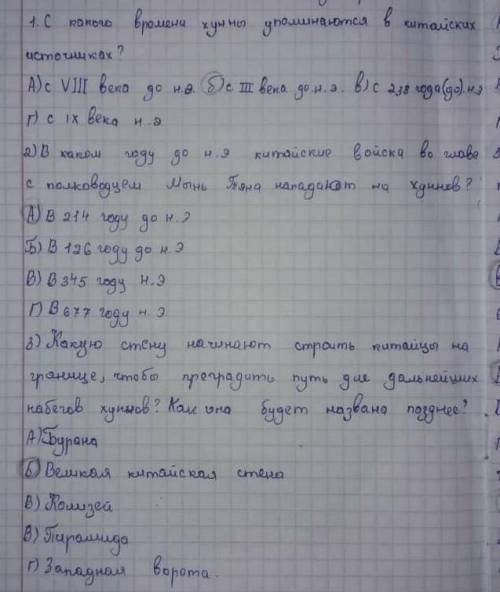 1. С какого времени хунны упоминаются в китайских
источниках?
А) с VIII века до н.э. б) с III века до н.э. в) с 238 года (до) н.э
г) с IX века н.э
2) В каком году до н.э китайские войска во главе
с полководцем Мынь Тяна нападают на хуннов?
А) В 214 году до н.э
Б) В 126 году до н.э
В) В 345 году н.э
Г) В 677 году н.э
3) Какую стену начинают строить китайцы на
границе, чтобы преградить путь для дальнейших
набегов хуннов? Как она будет названа позднее?
А) Бурана
Б) Великая китайская стена
В) Колизей
В) Пирамида
Г) Западная ворота.